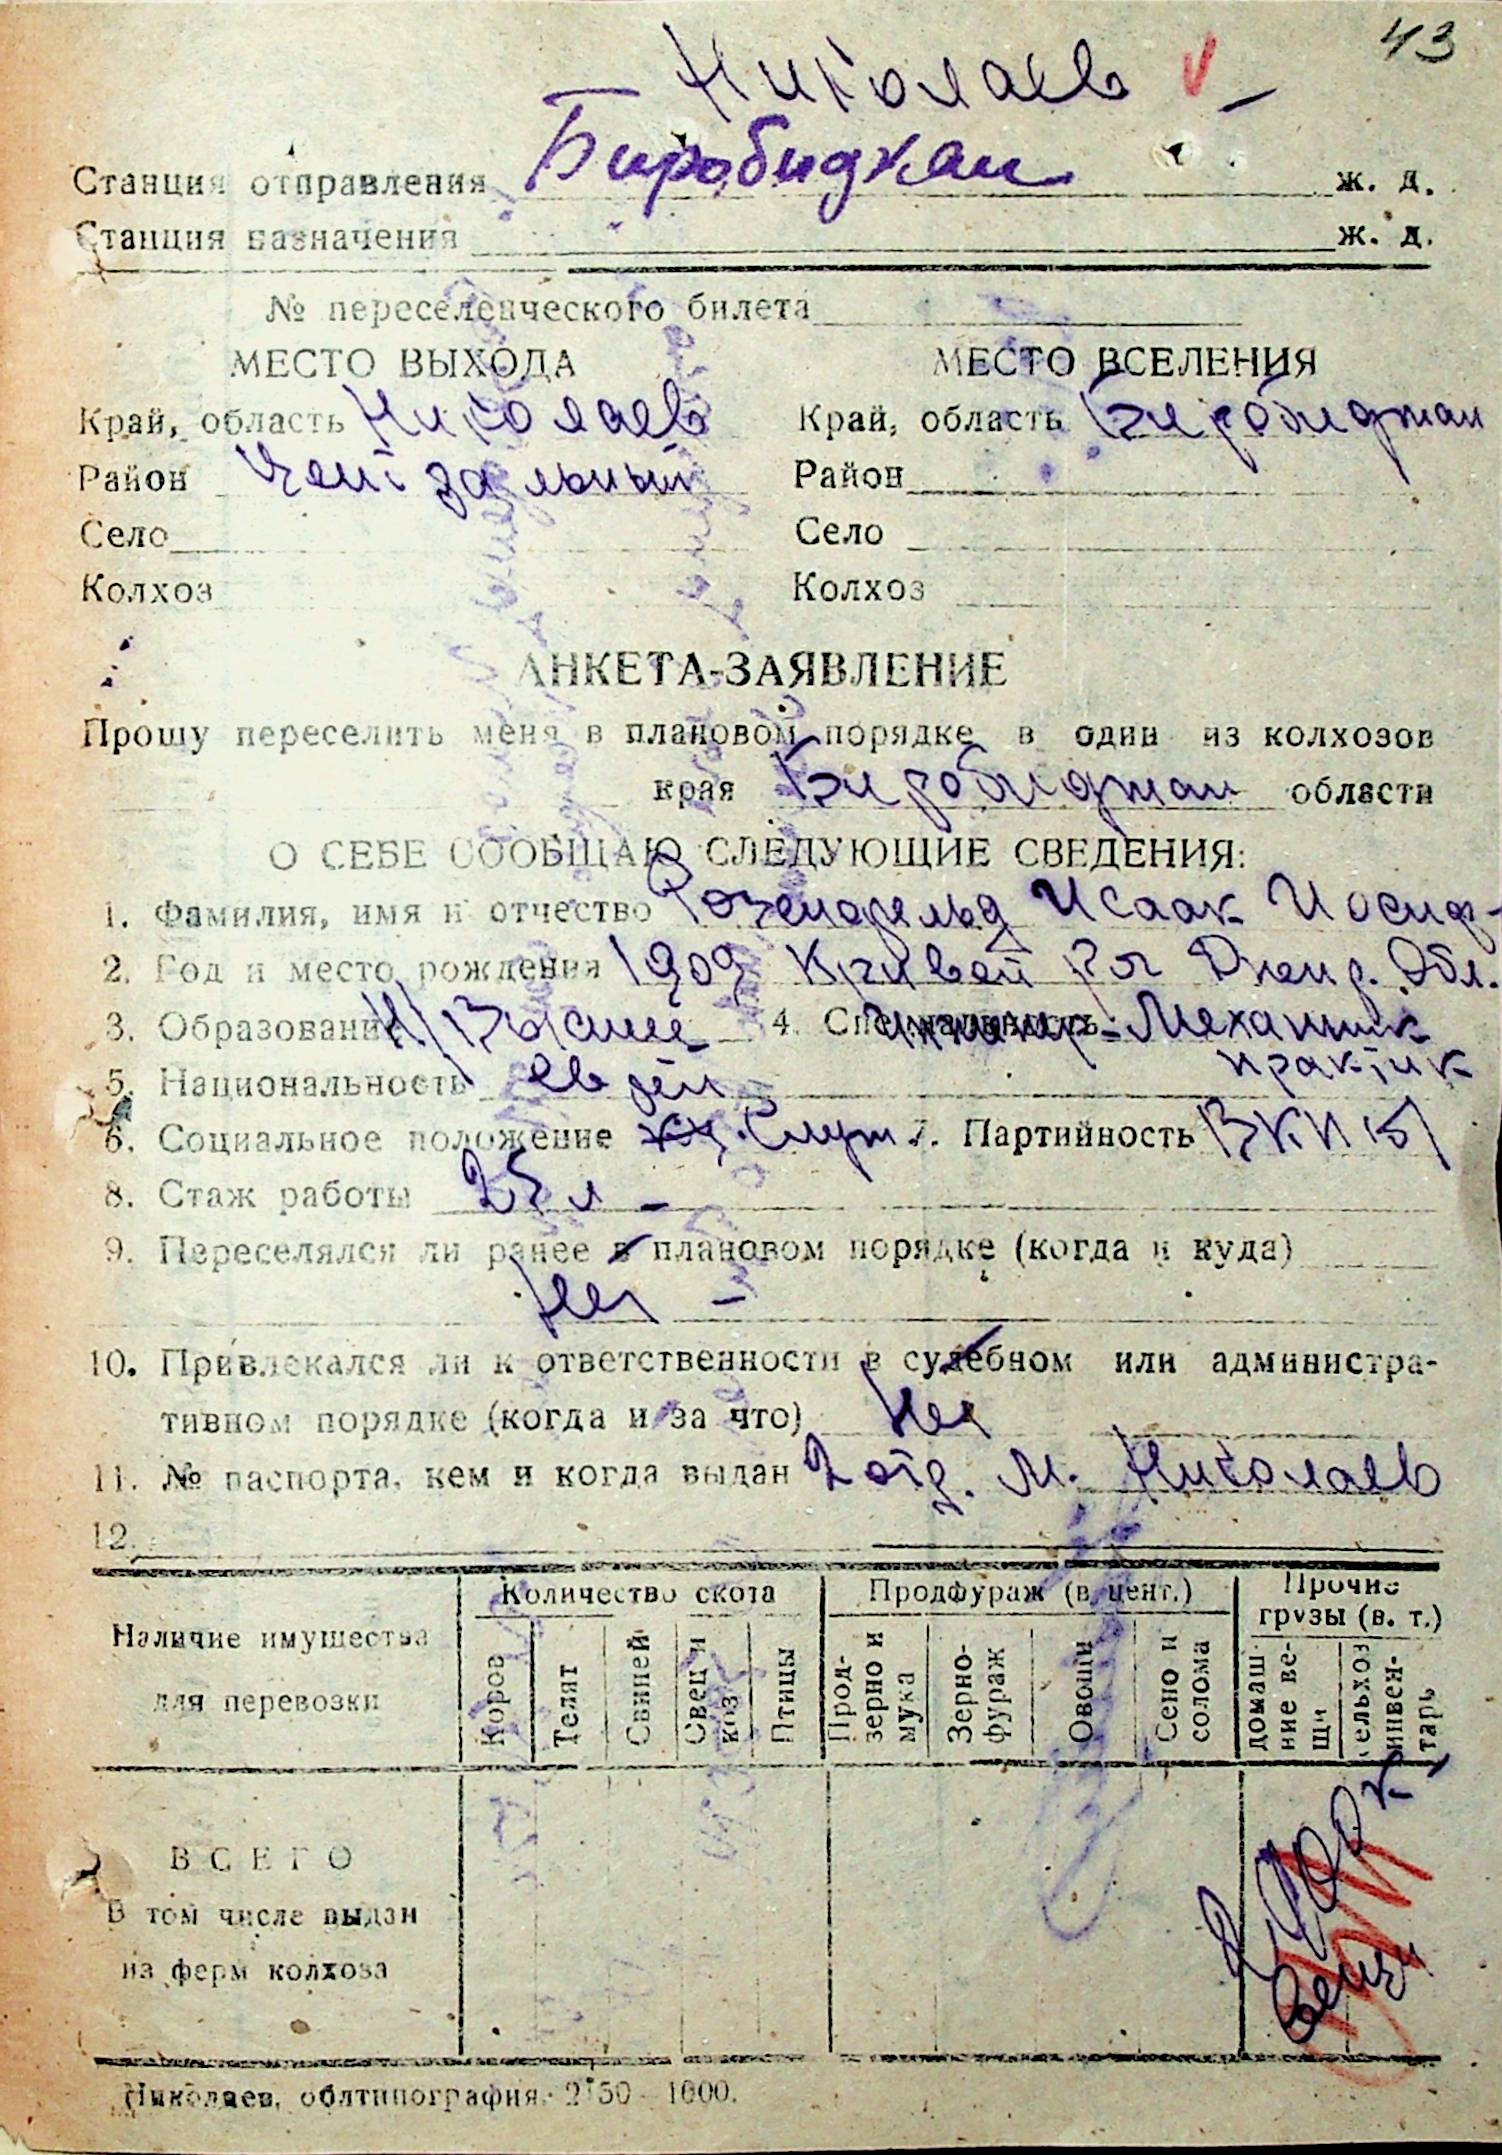 43
Николаев
Станция отправления Биробиджан ж. д.
Станция назначения ж. д.
№ переселенческого билета
МЕСТО ВЫХОДА МЕСТО ВСЕЛЕНИЯ
Край, область Николаев Край, область Биробиджан
Район Центральный Район
Село Село
Колхоз Колхоз
АНКЕТА-ЗАЯВЛЕНИЕ
Прошу переселить меня в плановом порядке в один из колхозов
края Биробиджан области
О СЕБЕ СООБЩАЮ СЛЕДУЮЩИЕ СВЕДЕНИЯ:
1. Фамилия, имя и отчество Розенфельд Исаак Иосиф-
2. Год и место рождения 1909 Кривой Рог Днепр. Обл.
3. Образование Н/Высшее 4. Специальность Инженер-Механик
практик
5. Национальность еврей
6. Социальное положение Служ 7. Партийность ВКП(б)
8. Стаж работы 25 л -
9. Переселялся ли ранее в плановом порядке (когда и куда)
Нет -
10. Привлекался ли к ответственности в судебном или администра-
тивном порядке (когда и за что) Нет
11. № паспорта, кем и когда выдан 2 отд. М. Николаев
12.
Наличие имущества для перевозки
Количество скота Продфураж (в цент.) Прочие грузы (в. т.)
Коров Телят Свиней Овец и коз Птицы Прод-зерно и мука Зерно-фураж Овощи Сено и солома домашние вещи сельхоз инвен-тарь
ВСЕГО
В том числе выдан
из ферм колхоза
вещи
Николаев, облтипография. 2 50 1000.